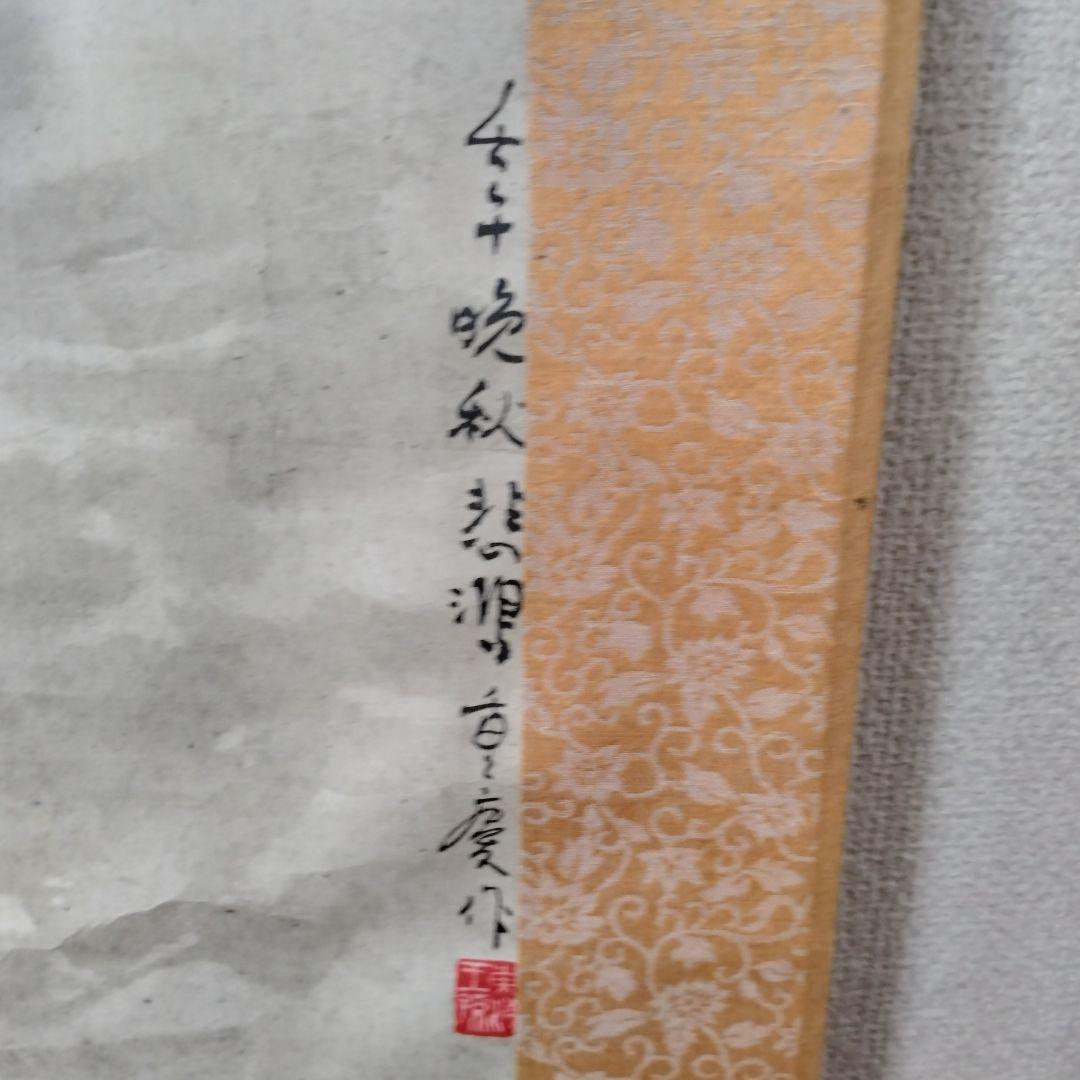 壬午晚秋悲鴻重慶作